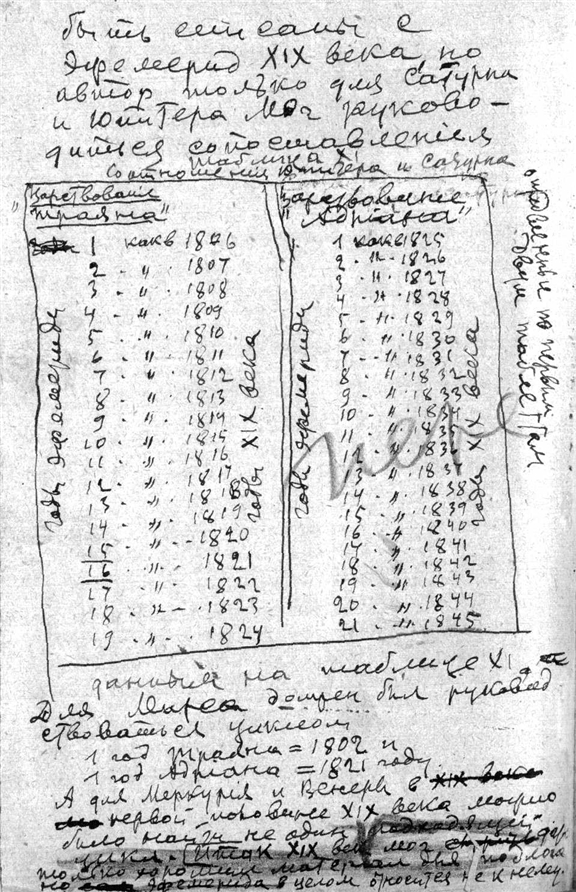 быть списаны с
Эфемерид XIX века, но
автор только для Сатурна
и Юпитера мог руково-
диться сопоставлением
таблица XI
Соотношения Юпитера и Сатурна
"Царствование Траяна"
1 как в 1806
2 " 1807
3 " 1808
4 " 1809
5 " 1810
6 " 1811
7 " 1812
8 " 1813
9 " 1814
10 " 1815
11 " 1816
12 " 1817
13 " 1818
14 " 1819
15 " 1820
16 " 1821
17 " 1822
18 " 1823
19 " 1824
годы эфемериды
годы XIX века
"Царствование Адриана"
1 как в 1825
2 " 1826
3 " 1827
4 " 1828
5 " 1829
6 " 1830
7 " 1831
8 " 1832
9 " 1833
10 " 1834
11 " 1835
12 " 1836
13 " 1837
14 " 1838
15 " 1839
16 " 1840
17 " 1841
18 " 1842
19 " 1843
20 " 1844
21 " 1845
годы эфемериды
годы XIX века
по первым
двум таблеткам
данными на таблице XI, а
Для Марса должен был руковод
ствоваться циклом
1 год Траяна = 1802 и
1 год Адриана = 1821 году.
А для Меркурия и Венеры в XIX веке
первой половине XIX века можно
было найти не один подходящий
цикл. Итак XIX век мог
только хороший материал для
но эфемерида в целом относится не к нему.